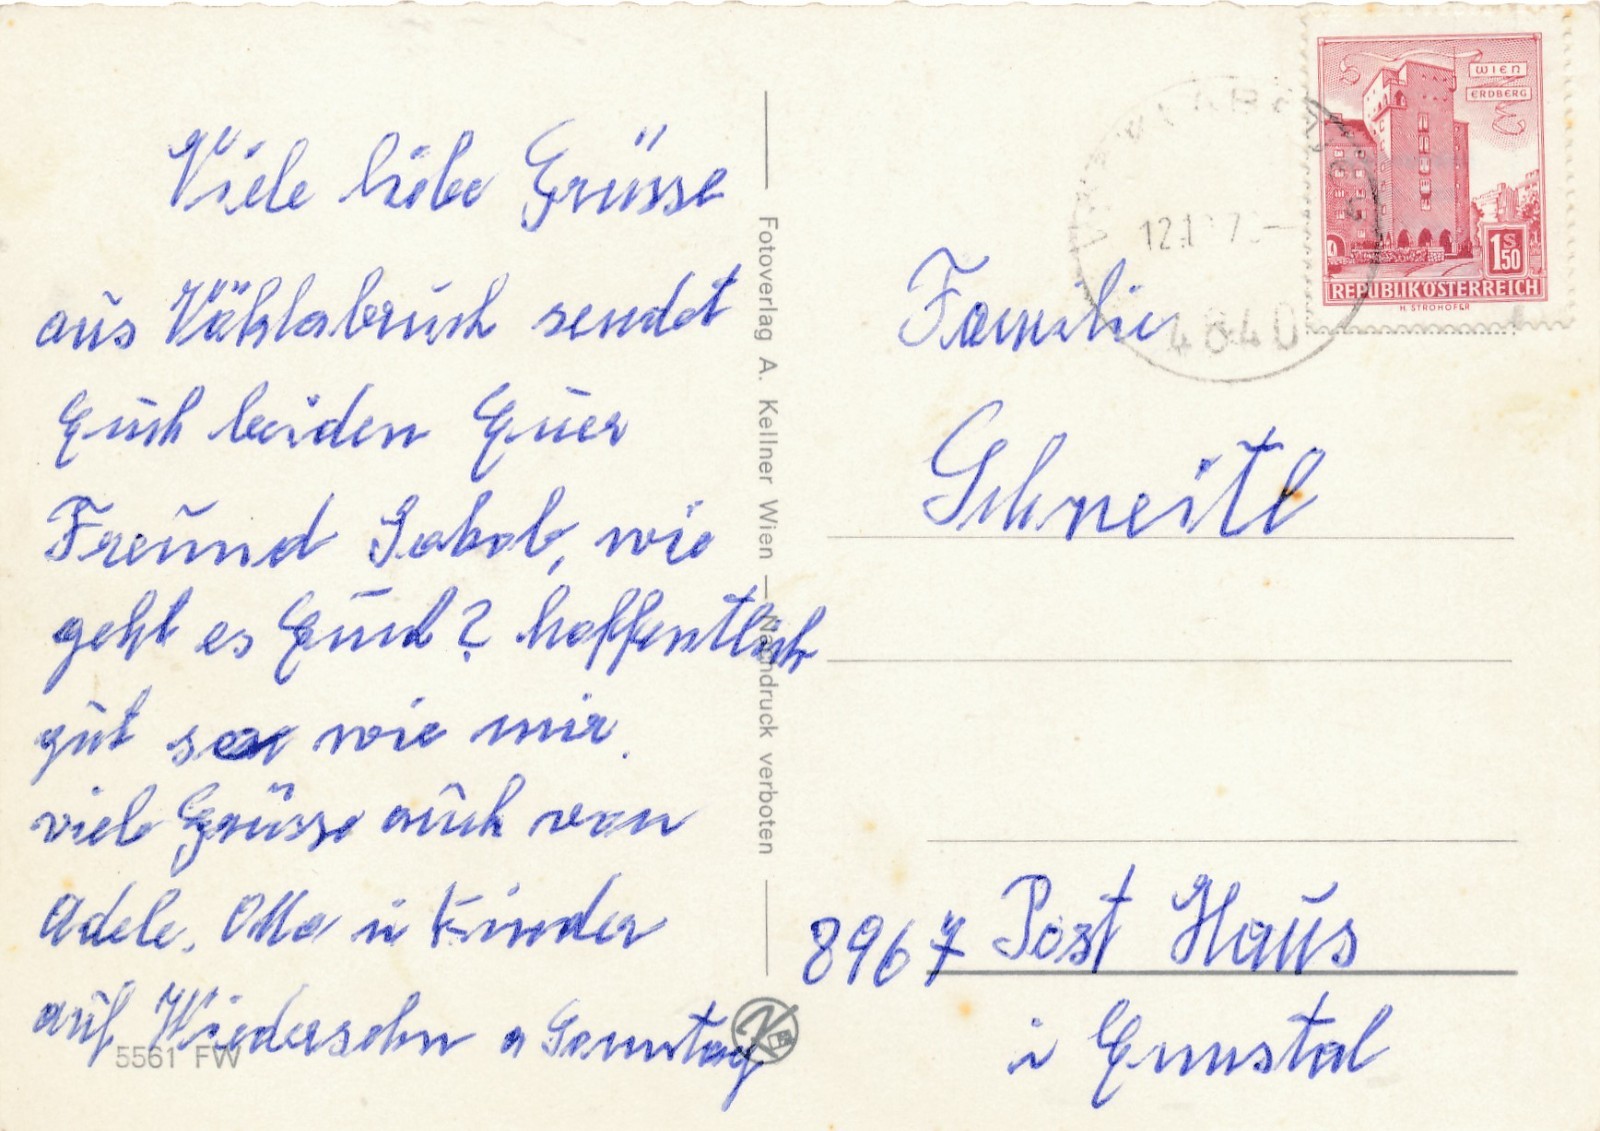 Viele liebe Grüsse
aus Vöhlabruck sendet
Euch beiden Euer
Freund Jakob, wie
geht es Euch? hoffentlich
gut so wie mir.
viele Grüsse auch von
Adele, Otto u Kinder
auf Wiedersehn a Sonntag
5561 FW
Fotoverlag A. Kellner Wien — Nachdruck verboten
WIEN
ERDBERG
1 S 50
REPUBLIK ÖSTERREICH
H. STROHOFER
4840
Familie
Schneitl
8967 Post Haus
i Ennstal